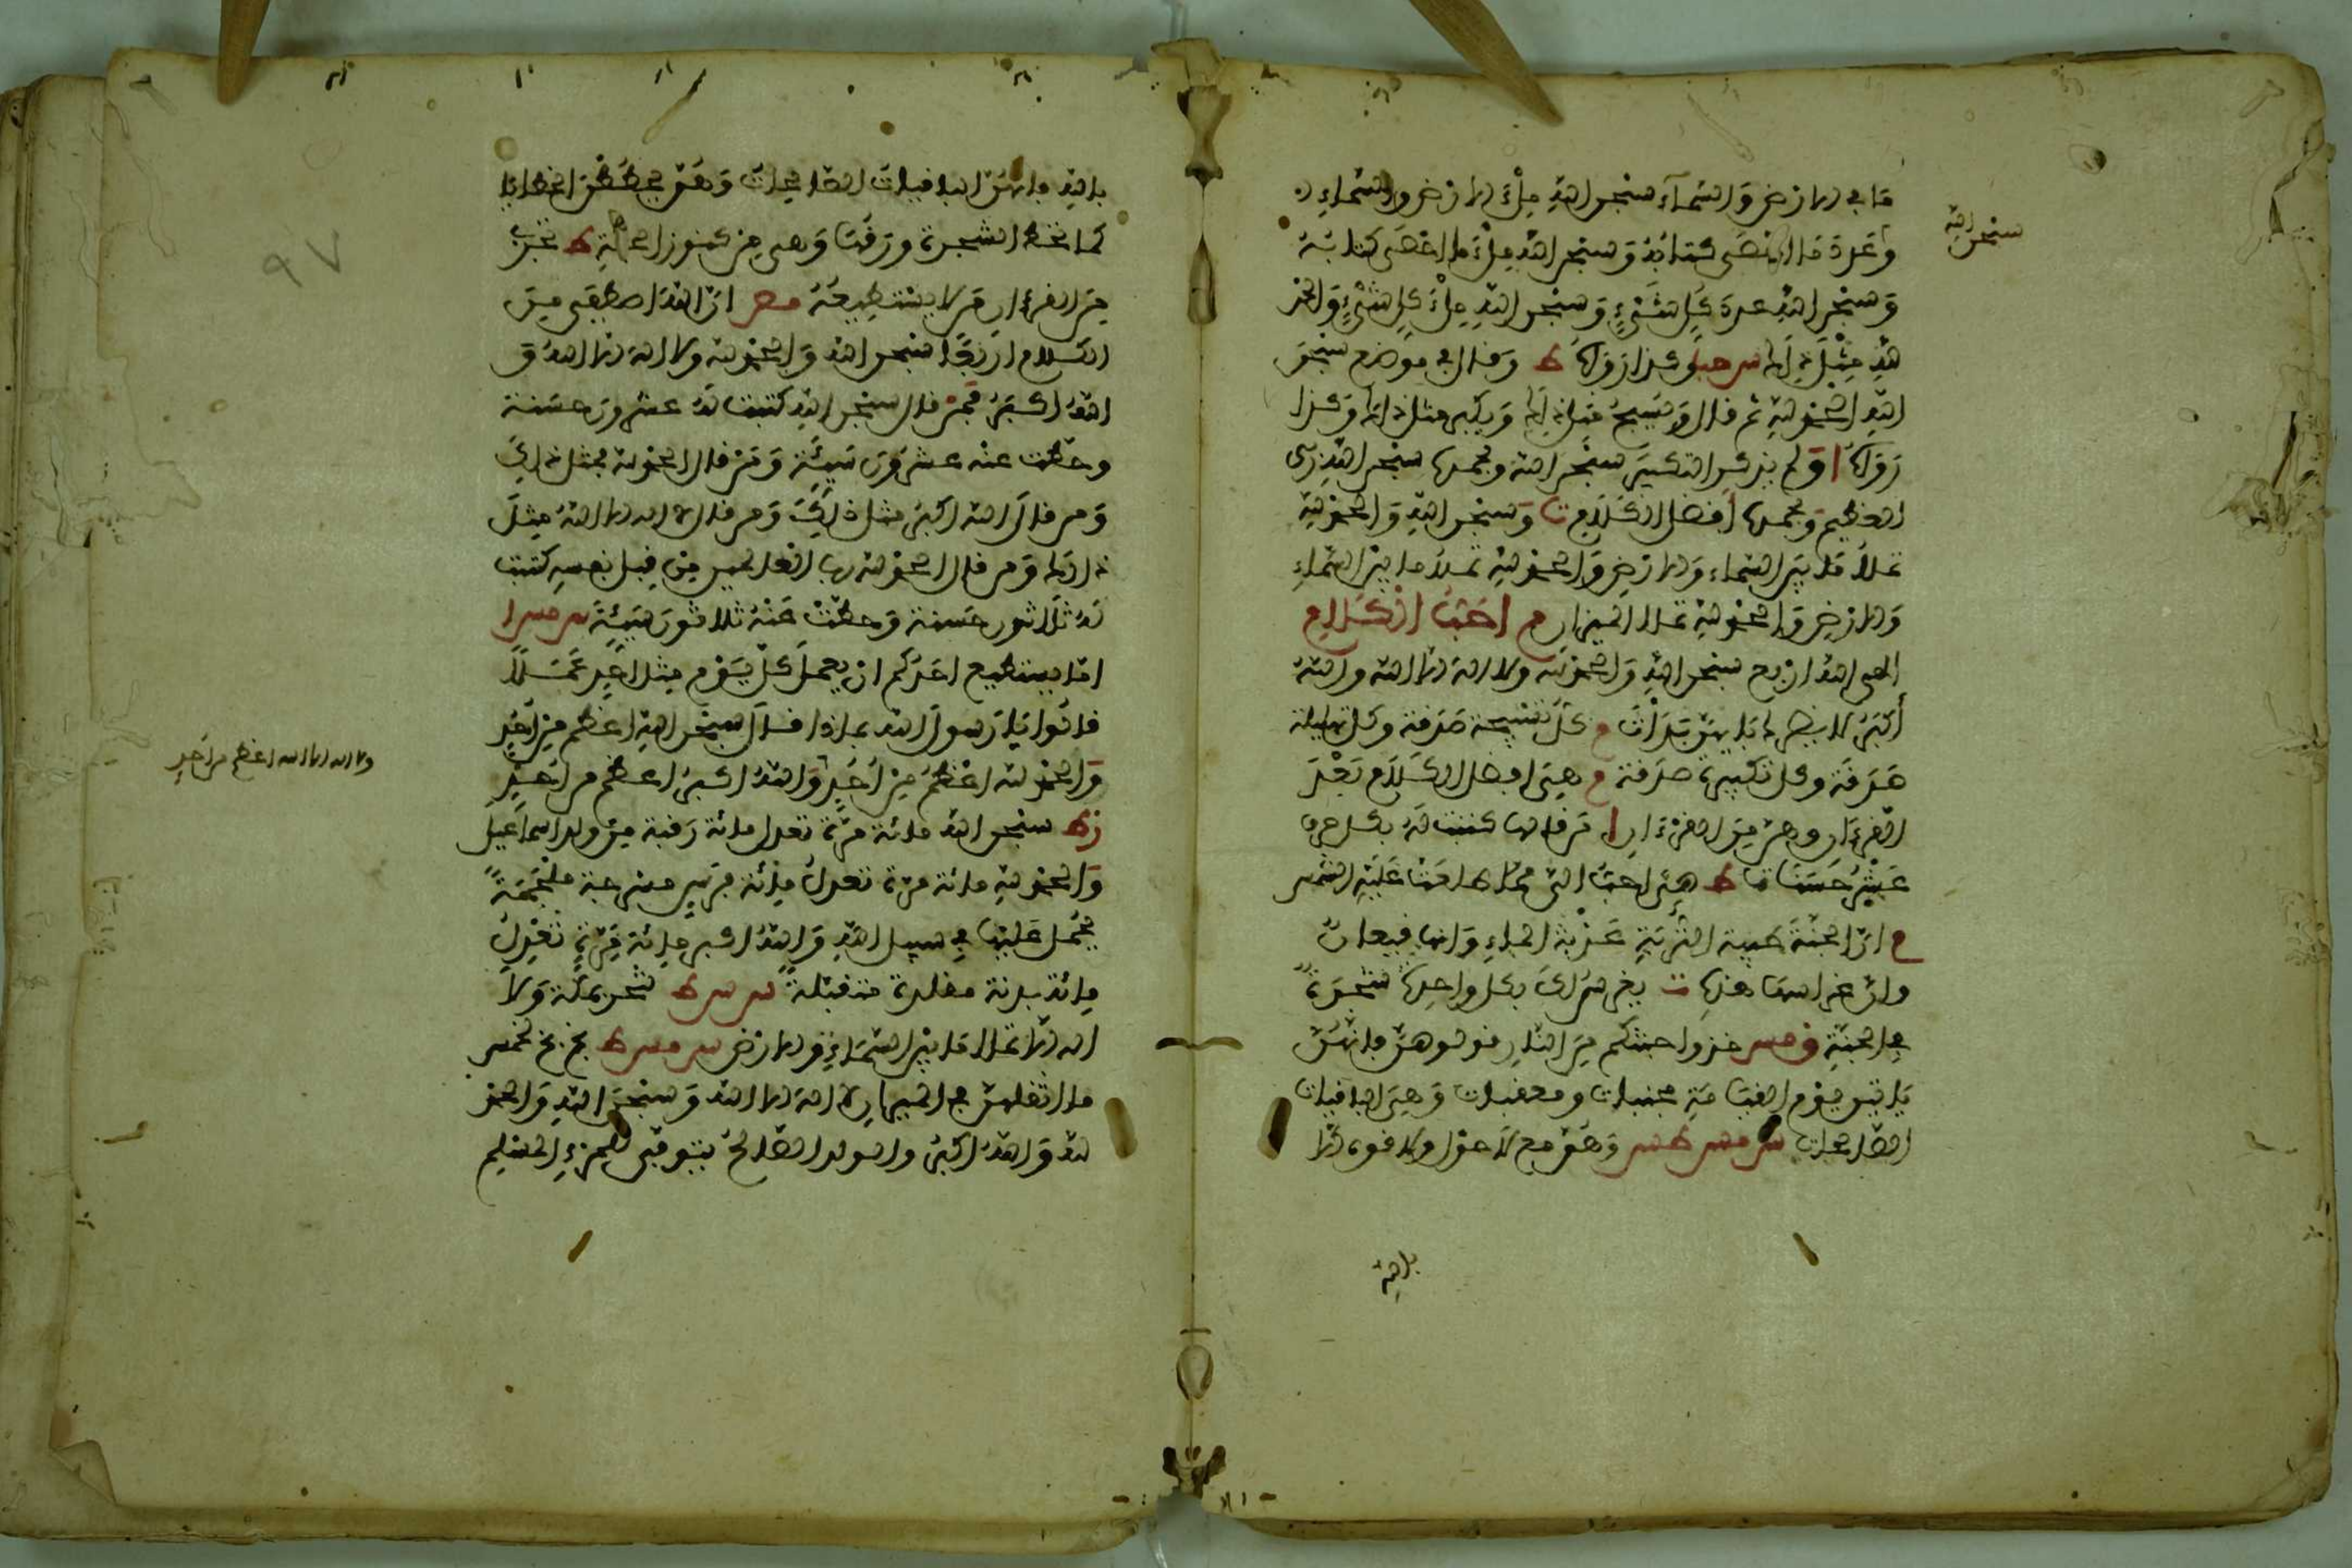 ما في الارض والسماء سبحن الله ملء الارض والسماء
سبحن الله
وعدد ما احصى كتابه وسبحن الله ملء ما احصى كتابه
وسبحن الله عدد كل شيء وسبحن الله ملء كل شيء والحمد
لله مثل ذلك س حب كذا رواه ط وقال في موضع سبحن
الله الحمد لله ثم قال وتسبح مثل ذلك وتكبر مثل ذلك وكذا
رواه ا ولم يذكر التكبير سبحن الله وبحمده سبحن الله
العظيم وبحمده افضل الكلام ت وسبحن الله والحمد لله
تملأ ما بين السماء والارض والحمد لله تملأ ما بين السماء
والارض والحمد لله تملأ الميزان م احب الكلام
الى الله اربع سبحن الله والحمد لله ولا اله الا الله والله
أكبر لا يضرك بأيهن بدأت م كل تسبيحة صدقة وكل تهليلة
صدقة وكل تكبيرة صدقة م هي افضل الكلام بعد
القرءان وهن من القرءان ا من قالها كتبت له بكل حرف
عشر حسنات ط هي احب الي مما طلعت عليه الشمس
م ان الجنة طيبة التربة عذبة الماء وانها قيعان
وان غراسها هذه ت يغرس لك بكل واحدة شجرة
في الجنة ق مس خذوا جنتكم من النار قولوهن فانهن
يأتين يوم القيامة مجنبات ومعقبات وهي الباقيات
الصالحات س مس طس وهن مع لا حول ولا قوة الا
بالله
بالله فانهن الباقيات الصالحات وهن يحططن الخطايا
كما تحط الشجرة ورقها وهي من كنوز الجنة ط تجزي
من القرءان من لا يستطيعه مص ان الله اصطفى من
الكلام اربعا سبحن الله والحمد لله ولا اله الا الله و
الله اكبر فمن قال سبحن الله كتبت له عشرون حسنة
وحطت عنه عشرون سيئة ومن قال الحمد لله بمثل ذلك
ومن قال الله اكبر مثل ذلك ومن قال لا اله الا الله مثل
ذلك ومن قال الحمد لله رب العالمين من قبل نفسه كتبت
له ثلاثون حسنة وحطت عنه ثلاثون سيئة س مس ا
اما يستطيع احدكم ان يعمل كل يوم مثل احد عملا
قالوا يا رسول الله بماذا قال سبحن الله اعظم من احد
ولا اله الا الله اعظم من احد
والحمد لله اعظم من احد والله اكبر اعظم من احد
ز ط سبحن الله مائة مرة تعدل مائة رقبة من ولد اسماعيل
والحمد لله مائة مرة تعدل مائة فرس مسرجة ملجمة
يحمل عليها في سبيل الله والله اكبر مائة مرة تعدل
مائة بدنة مقلدة متقبلة س ط تنحر بمكة ولا
اله الا الله تملأ ما بين السماء والارض س مس ط بخ بخ لخمس
ما اثقلهن في الميزان لا اله الا الله وسبحن الله والحمد
لله والله اكبر والولد الصالح يتوفى للمرء المسلم